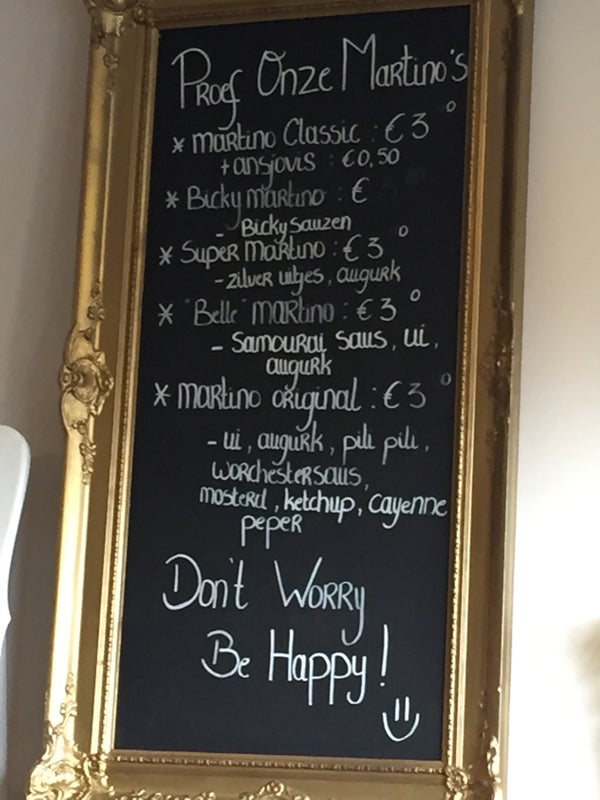 Proef Onze Martino's
* Martino Classic : € 3°
+ ansjovis : €0,50
* Bicky Martino : €
- Bicky Sauzen
* Super Martino : € 3°
- zilver uitjes, augurk
* "Belle" Martino : € 3°
- Samourai saus, ui,
augurk
* Martino original : € 3°
- ui, augurk, pili pili,
worchestersaus,
mosterd, ketchup, cayenne
peper
Don't Worry
Be Happy!